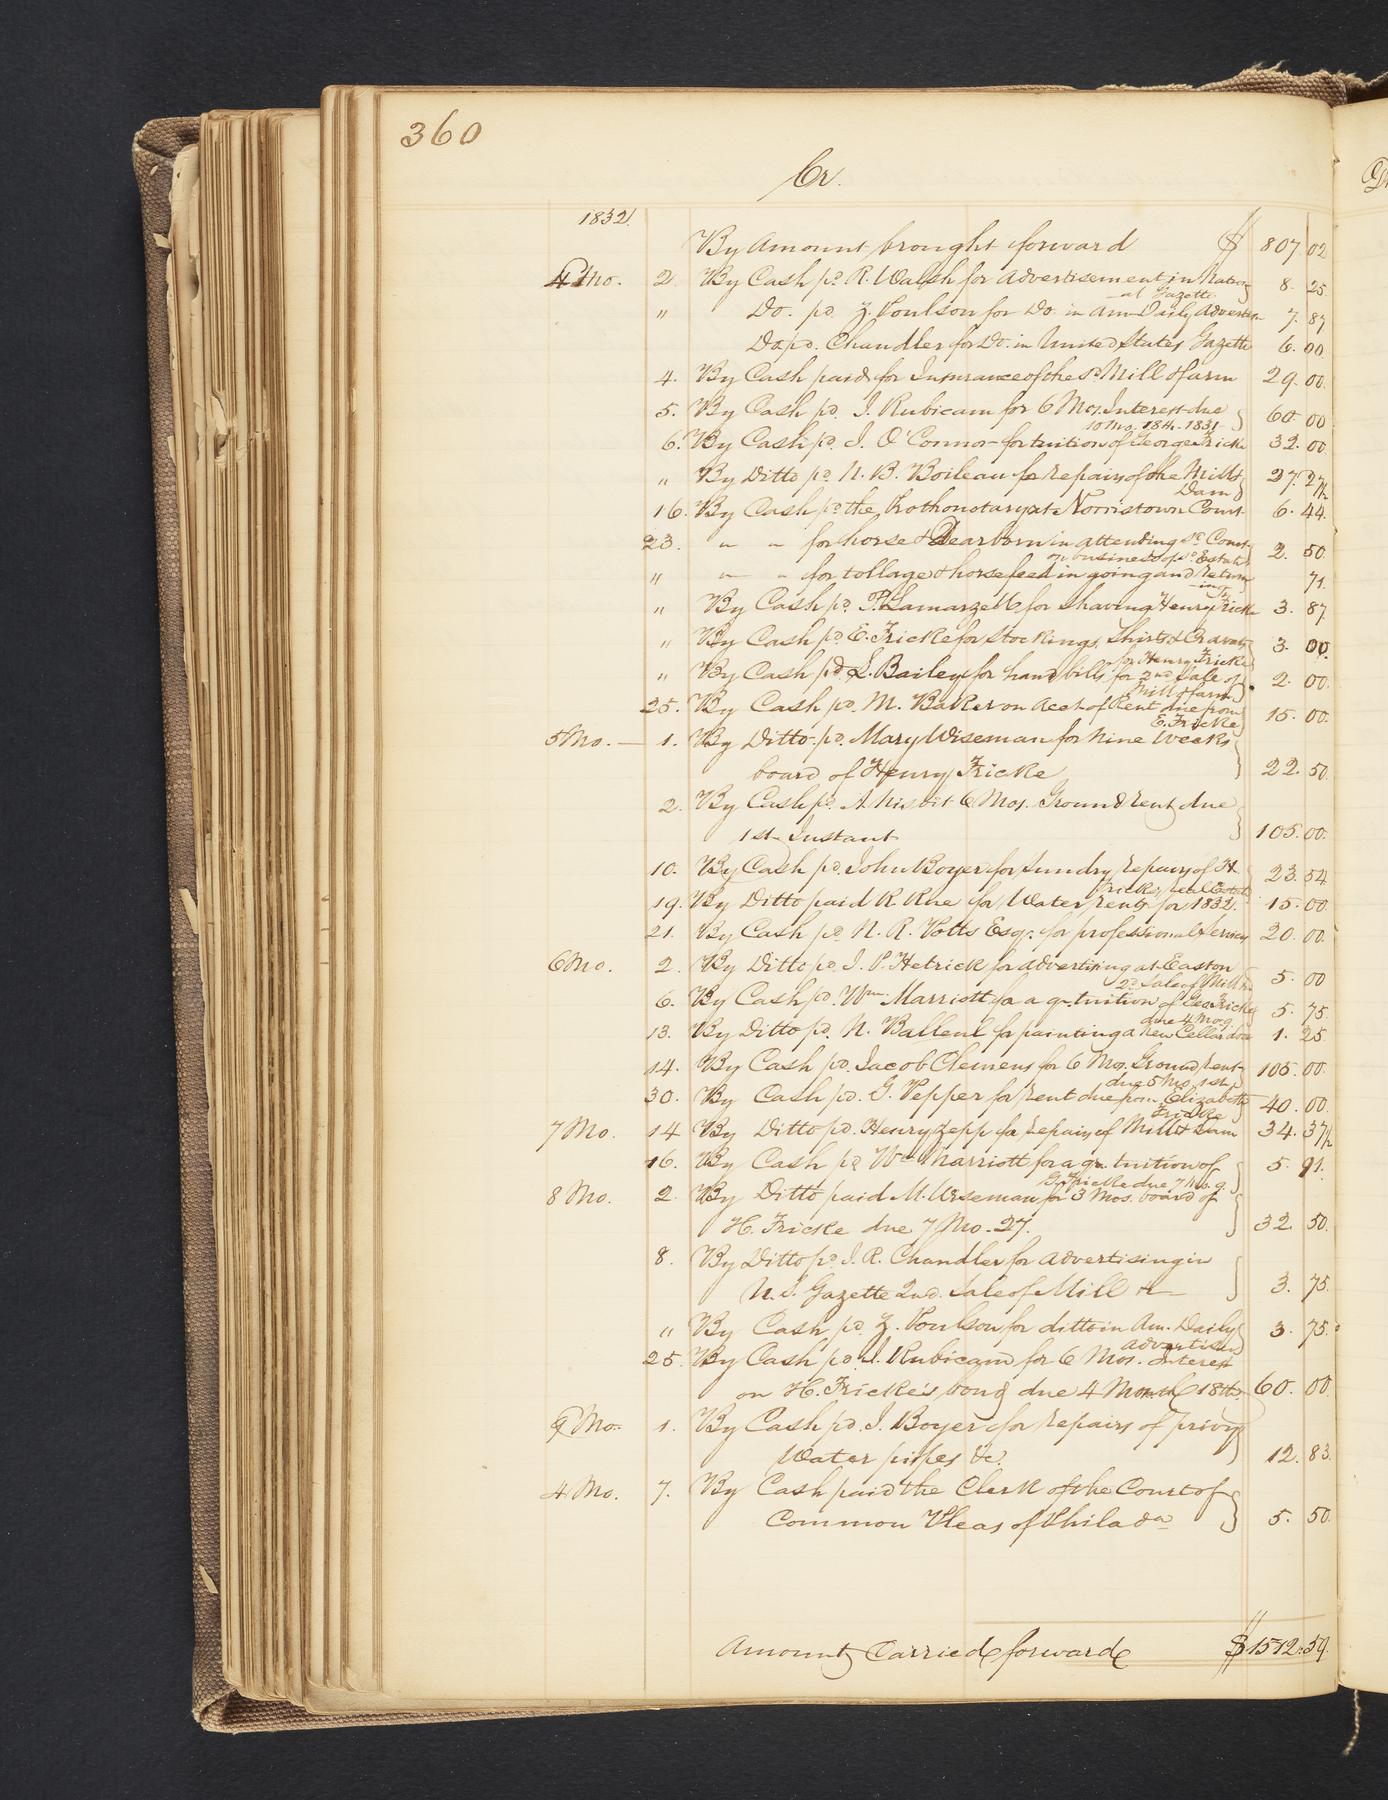 360
Cr.
1832
By Amount brought forward $ 807 02
4 Mo. 2 By Cash pd. R. Walsh for Advertisement in Nation- 8. 25
al Gazette
" Do. pd. Z. Poulson for Do. in Am. Daily Advertiser 7. 87
Do pd. Chandler for Do. in United States Gazette 6. 00
4. By Cash paid for Insurance of the sd. Mill & farm 29. 00
5. By Cash pd. I. Rubicam for 6 Mos. Interest due 60 00
10 Mo. 18th. 1831
6. By Cash pd. I. O'Connor for tuition of George Fricke 32. 00
" By Ditto pd. N. B. Boileau for repairs of the Mill & 27. 27½
Dam
16. By Cash pd. the Prothonotary at Norristown Court 6. 44
23. " " for horse & Dearborn in attending sd. Court 2. 50
on business of sd. Estate
" " " for tollage & horse feed in going and return 71
-ing
" By Cash pd. P. Lamarzell for shaving Henry Fricke 3. 87
" By Cash pd. E. Fricke for Stockings, Shirts & Cravats 3. 00
for Henry Fricke
" By Cash pd. S. Bailey for hand bills for 2nd Sale of 2. 00
Mill & farm
25. By Cash pd. M. Baker on Acct. of Rent due from 15. 00
E. Fricke
5 Mo. — 1. By Ditto pd. Mary Wiseman for Nine Weeks
board of Henry Fricke 22. 50
2. By Cash pd. A. Nisbit 6 Mos. Ground Rent due
1st Instant 105. 00
10. By Cash pd. John Boyer for sundry repairs of H. 23. 54
Fricke's real Estate
19. By Ditto paid R. Rue for Water rent for 1832. 15. 00
21. By Cash pd. N. R. Potts Esqr. for professional Services 20. 00
6 Mo. 2. By Ditto pd. I. P. Hetrick for advertising at Easton 5. 00
2d. Sale of Mill &c
6. By Cash pd. Wm. Marriott for a qr. tuition of Geo. Fricke 5. 75
due 4 Mo. 9
13. By Ditto pd. N. Ballenl for painting a new Cellar door 1. 25
14. By Cash pd. Jacob Clemens for 6 Mos. Ground Rent 105. 00
due 5 Mo. 1st.
30. By Cash pd. G. Pepper for Rent due from Elizabeth 40. 00
Fricke
7 Mo. 14 By Ditto pd. Henry Zepp for repairs of Mill & dam 34. 37½
16. By Cash pd Wm. Marriott for a qr. tuition of 5. 91
G. Fricke due 7 Mo. 9
8 Mo. 2 By Ditto paid M. Wiseman for 3 Mos. board of
H. Fricke due 7 Mo. 27. 32. 50
8. By Ditto pd. J. R. Chandler for advertising in
U. S. Gazette 2nd. Sale of Mill &c 3. 75
" By Cash pd. Z. Poulson for ditto in Am. Daily 3. 75
Advertiser
25 By Cash pd. I. Rubicam for 6 Mos. Interest
on H. Fricke's bond due 4 Month 18th 60. 00
9 Mo. 1. By Cash pd. J. Boyer for repairs of privy
Water pipes &c. 12. 83
4 Mo. 7. By Cash paid the Clerk of the Court of
Common Pleas of Philada 5. 50
Amount Carried forward $1512.59